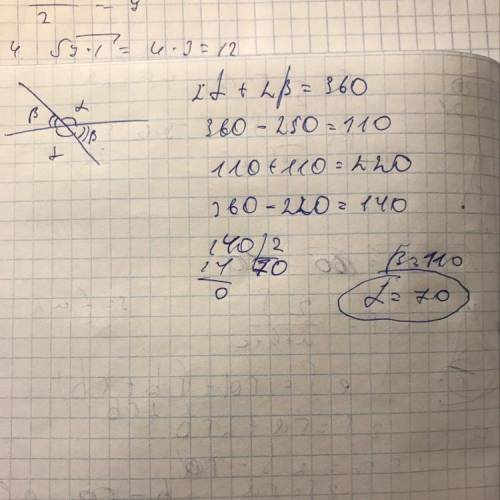 2 = 4
4 √9·1 = 4·3=12
β α
α β
2α + 2β = 360
360 - 250 = 110
110 + 110 = 220
360 - 220 = 140
140 / 2
14 70
0
β = 110
α = 70